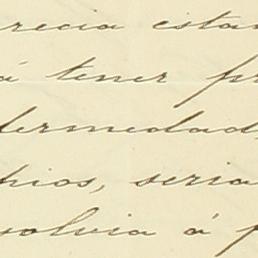 recia esta
á tener pr
fermedad,
hios, seria
solvia á p